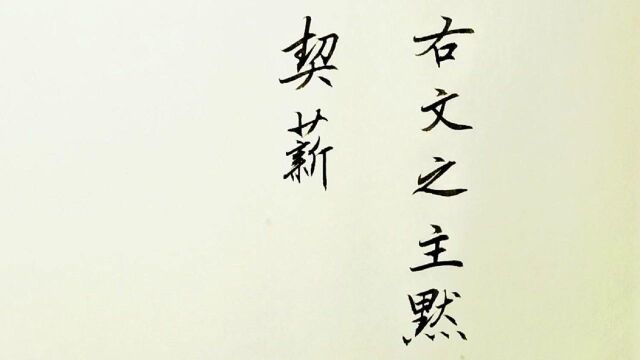 右文之主默
契薪